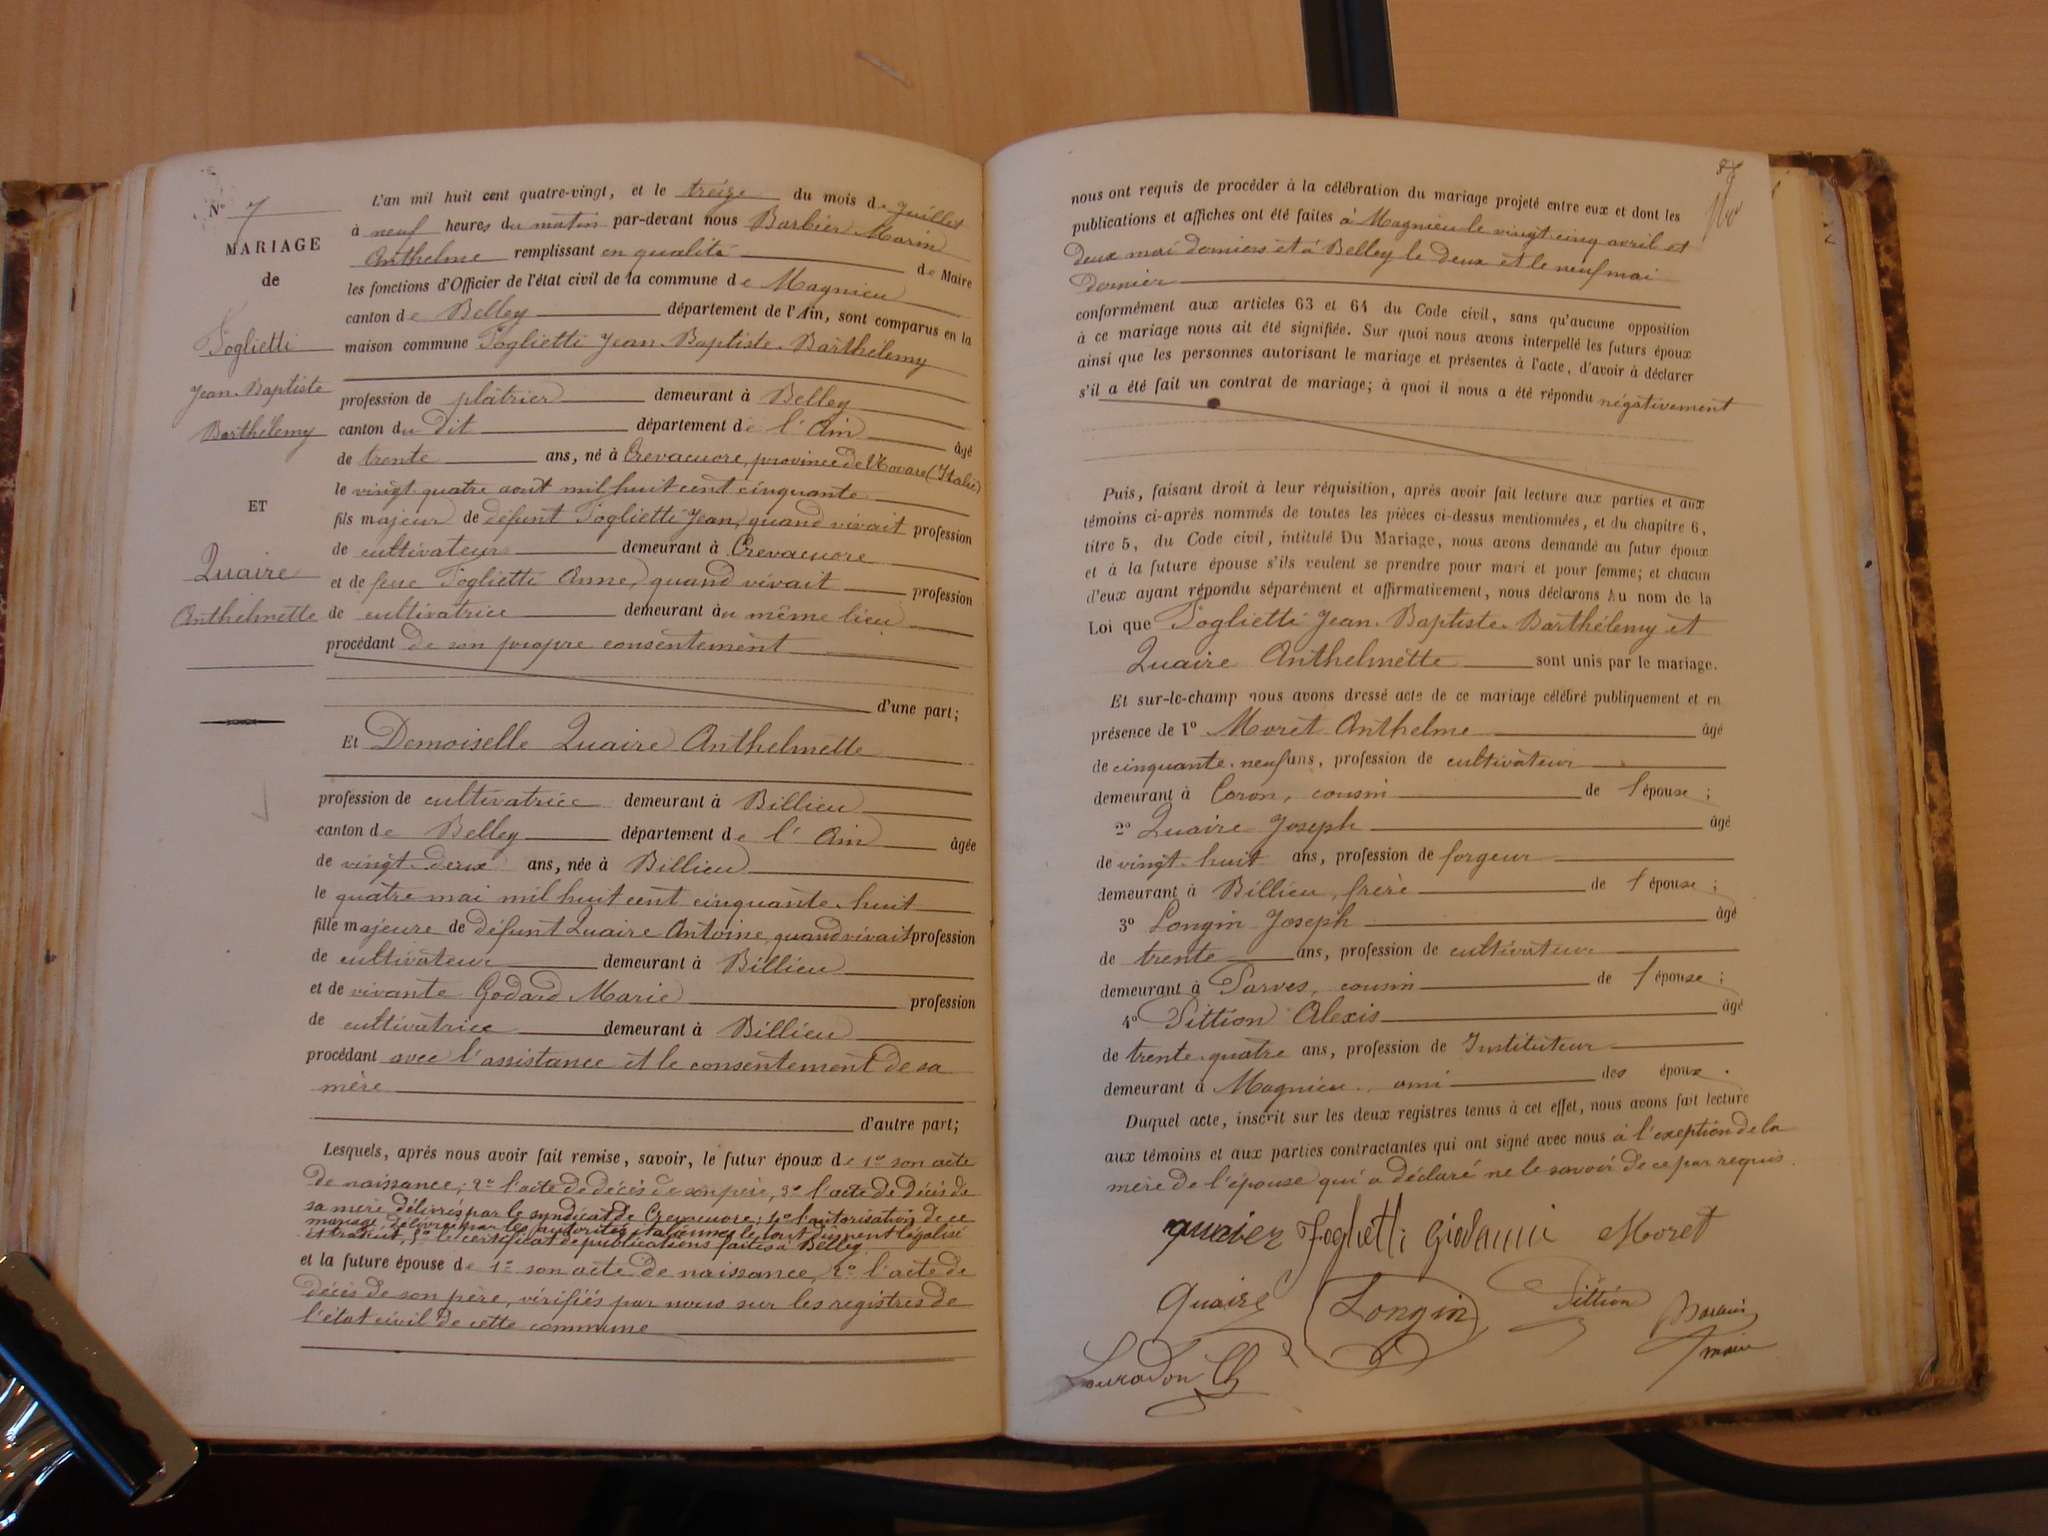 N° 7
MARIAGE
de
Foglietti
Jean-Baptiste
Barthélemy
ET
Quaire
Anthelmette
L'an mil huit cent quatre-vingt, et le treize du mois de Juillet
à neuf heures du matin par-devant nous Barbier Marin
Anthelme remplissant en qualité de Maire
les fonctions d'Officier de l'état civil de la commune de Magnieu
canton de Belley département de l'Ain, sont comparus en la
maison commune Foglietti Jean-Baptiste-Barthélemy
profession de plâtrier demeurant à Belley
canton du dit département de l'Ain âgé
de trente ans, né à Crevacuore, province de Novare (Italie)
le vingt-quatre août mil huit cent cinquante
fils majeur de défunt Foglietti Jean, quand vivait profession
de cultivateur demeurant à Crevacuore
et de feue Foglietti Anne, quand vivait profession
de cultivatrice demeurant au même lieu
procédant de son propre consentement
d'une part;
Et Demoiselle Quaire Anthelmette
profession de cultivatrice demeurant à Billieu
canton de Belley département de l'Ain âgée
de vingt-deux ans, née à Billieu
le quatre mai mil huit cent cinquante-huit
fille majeure de défunt Quaire Antoine, quand vivait profession
de cultivateur demeurant à Billieu
et de vivante Godard Marie profession
de cultivatrice demeurant à Billieu
procédant avec l'assistance et le consentement de sa
mère
d'autre part;
Lesquels, après nous avoir fait remise, savoir, le futur époux de 1° son acte
de naissance; 2° l'acte de décès de son père, 3° l'acte de décès de
sa mère délivrés par le syndicat de Crevacuore; 4° l'autorisation de ce
mariage, délivrée par les autorités italiennes le tout dûment légalisé
et traduit, 5° le certificat de publications faites à Belley
et la future épouse de 1° son acte de naissance, 2° l'acte de
décès de son père, vérifiés par nous sur les registres de
l'état civil de cette commune
nous ont requis de procéder à la célébration du mariage projeté entre eux et dont les
publications et affiches ont été faites à Magnieu le vingt-cinq avril et
deux mai derniers et à Belley le deux et le neuf mai
dernier
conformément aux articles 63 et 64 du Code civil, sans qu'aucune opposition
à ce mariage nous ait été signifiée. Sur quoi nous avons interpellé les futurs époux
ainsi que les personnes autorisant le mariage et présentes à l'acte, d'avoir à déclarer
s'il a été fait un contrat de mariage; à quoi il nous a été répondu négativement
Puis, faisant droit à leur réquisition, après avoir fait lecture aux parties et aux
témoins ci-après nommés de toutes les pièces ci-dessus mentionnées, et du chapitre 6,
titre 5, du Code civil, intitulé Du Mariage, nous avons demandé au futur époux
et à la future épouse s'ils veulent se prendre pour mari et pour femme; et chacun
d'eux ayant répondu séparément et affirmativement, nous déclarons Au nom de la
Loi que Foglietti Jean-Baptiste-Barthélemy et
Quaire Anthelmette sont unis par le mariage.
Et sur-le-champ nous avons dressé acte de ce mariage célébré publiquement et en
présence de 1° Moret Anthelme âgé
de cinquante-neuf ans, profession de cultivateur
demeurant à Coron, cousin de l'épouse;
2° Quaire Joseph âgé
de vingt-huit ans, profession de forgeur
demeurant à Billieu, frère de l'épouse;
3° Longin Joseph âgé
de trente ans, profession de cultivateur
demeurant à Parves, cousin de l'épouse;
4° Pittion Alexis âgé
de trente-quatre ans, profession de Instituteur
demeurant à Magnieu, ami des époux.
Duquel acte, inscrit sur les deux registres tenus à cet effet, nous avons fait lecture
aux témoins et aux parties contractantes qui ont signé avec nous à l'exeption de la
mère de l'épouse qui a déclaré ne le savoir de ce par requis.
Foglietti Giovanni Moret
Quaire Longin Pittion
maire